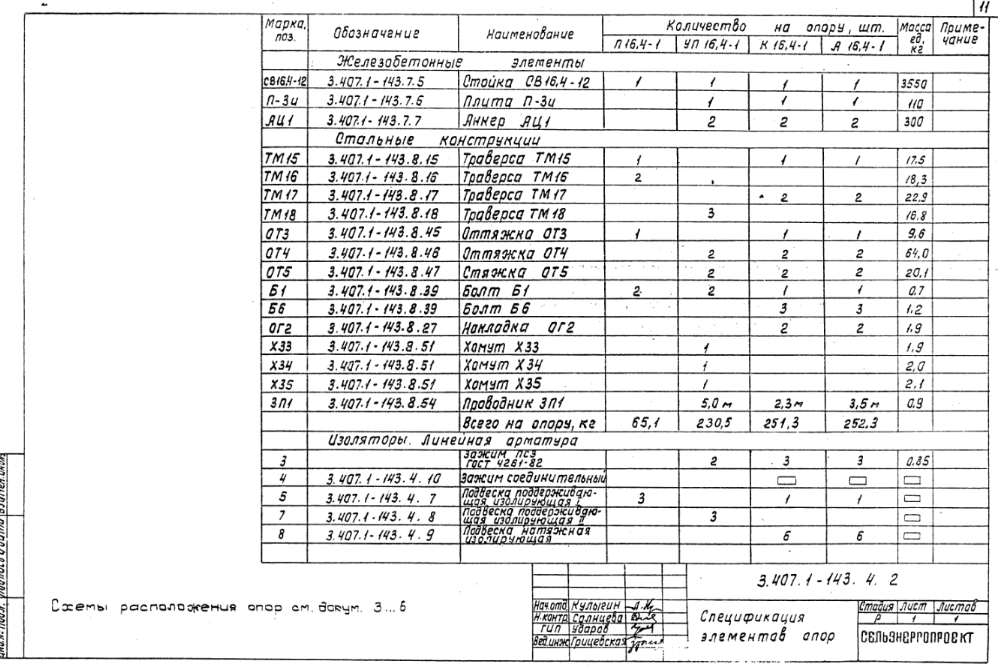 11
Марка, поз. Обозначение Наименование Количество на опору, шт. Масса ед., кг Примечание
П16,4-1 УП 16,4-1 К 16,4-1 А 16,4-1
Железобетонные элементы
СВ16,4-12 3.407.1-143.7.5 Стойка СВ16,4-12 1 1 1 1 3550
П-3и 3.407.1-143.7.6 Плита П-3и 1 1 1 110
АЦ1 3.407.1-143.7.7 Анкер АЦ1 2 2 2 300
Стальные конструкции
ТМ15 3.407.1-143.8.15 Траверса ТМ15 1 1 1 17,5
ТМ16 3.407.1-143.8.16 Траверса ТМ16 2 18,3
ТМ17 3.407.1-143.8.17 Траверса ТМ17 2 2 22,9
ТМ18 3.407.1-143.8.18 Траверса ТМ18 3 16,8
ОТ3 3.407.1-143.8.45 Оттяжка ОТ3 1 1 1 9,6
ОТ4 3.407.1-143.8.46 Оттяжка ОТ4 2 2 2 64,0
ОТ5 3.407.1-143.8.47 Стяжка ОТ5 2 2 2 20,1
Б1 3.407.1-143.8.39 Болт Б1 2 2 1 1 0.7
Б6 3.407.1-143.8.39 Болт Б6 3 3 1.2
ОГ2 3.407.1-143.8.27 Накладка ОГ2 2 2 1.9
Х33 3.407.1-143.8.51 Хомут Х33 1 1,9
Х34 3.407.1-143.8.51 Хомут Х34 1 2,0
Х35 3.407.1-143.8.51 Хомут Х35 1 2,1
ЗП1 3.407.1-143.8.54 Проводник ЗП1 5,0 м 2,3 м 3,5 м 0.9
Всего на опору, кг 65,1 230,5 251,3 252,3
Изоляторы. Линейная арматура
3 Зажим ПСЗ ГОСТ 4261-82 2 3 3 0.85
4 3.407.1-143.4.10 Зажим соединительный
5 3.407.1-143.4.7 Подвеска поддерживающая изолирующая I 3 1 1
7 3.407.1-143.4.8 Подвеска поддерживающая изолирующая II 3
8 3.407.1-143.4.9 Подвеска натяжная изолирующая 6 6
3.407.1-143.4.2
Схемы расположения опор см. докум. 3...6
Нач.отд Кулыгин
Н.контр Солнцева
ГИП Ударов
Вед.инж Грицевская
Спецификация элементов опор
Стадия Лист Листов
Р 1 1
СЕЛЬЭНЕРГОПРОЕКТ